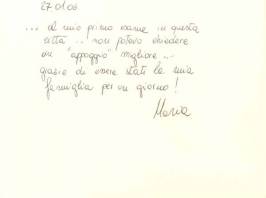 27.01.06
... al mio primo esame in questa
città ... non potevo chiedere
un "appoggio" migliore ...
grazie di essere stati la mia
famiglia per un giorno!
Maria